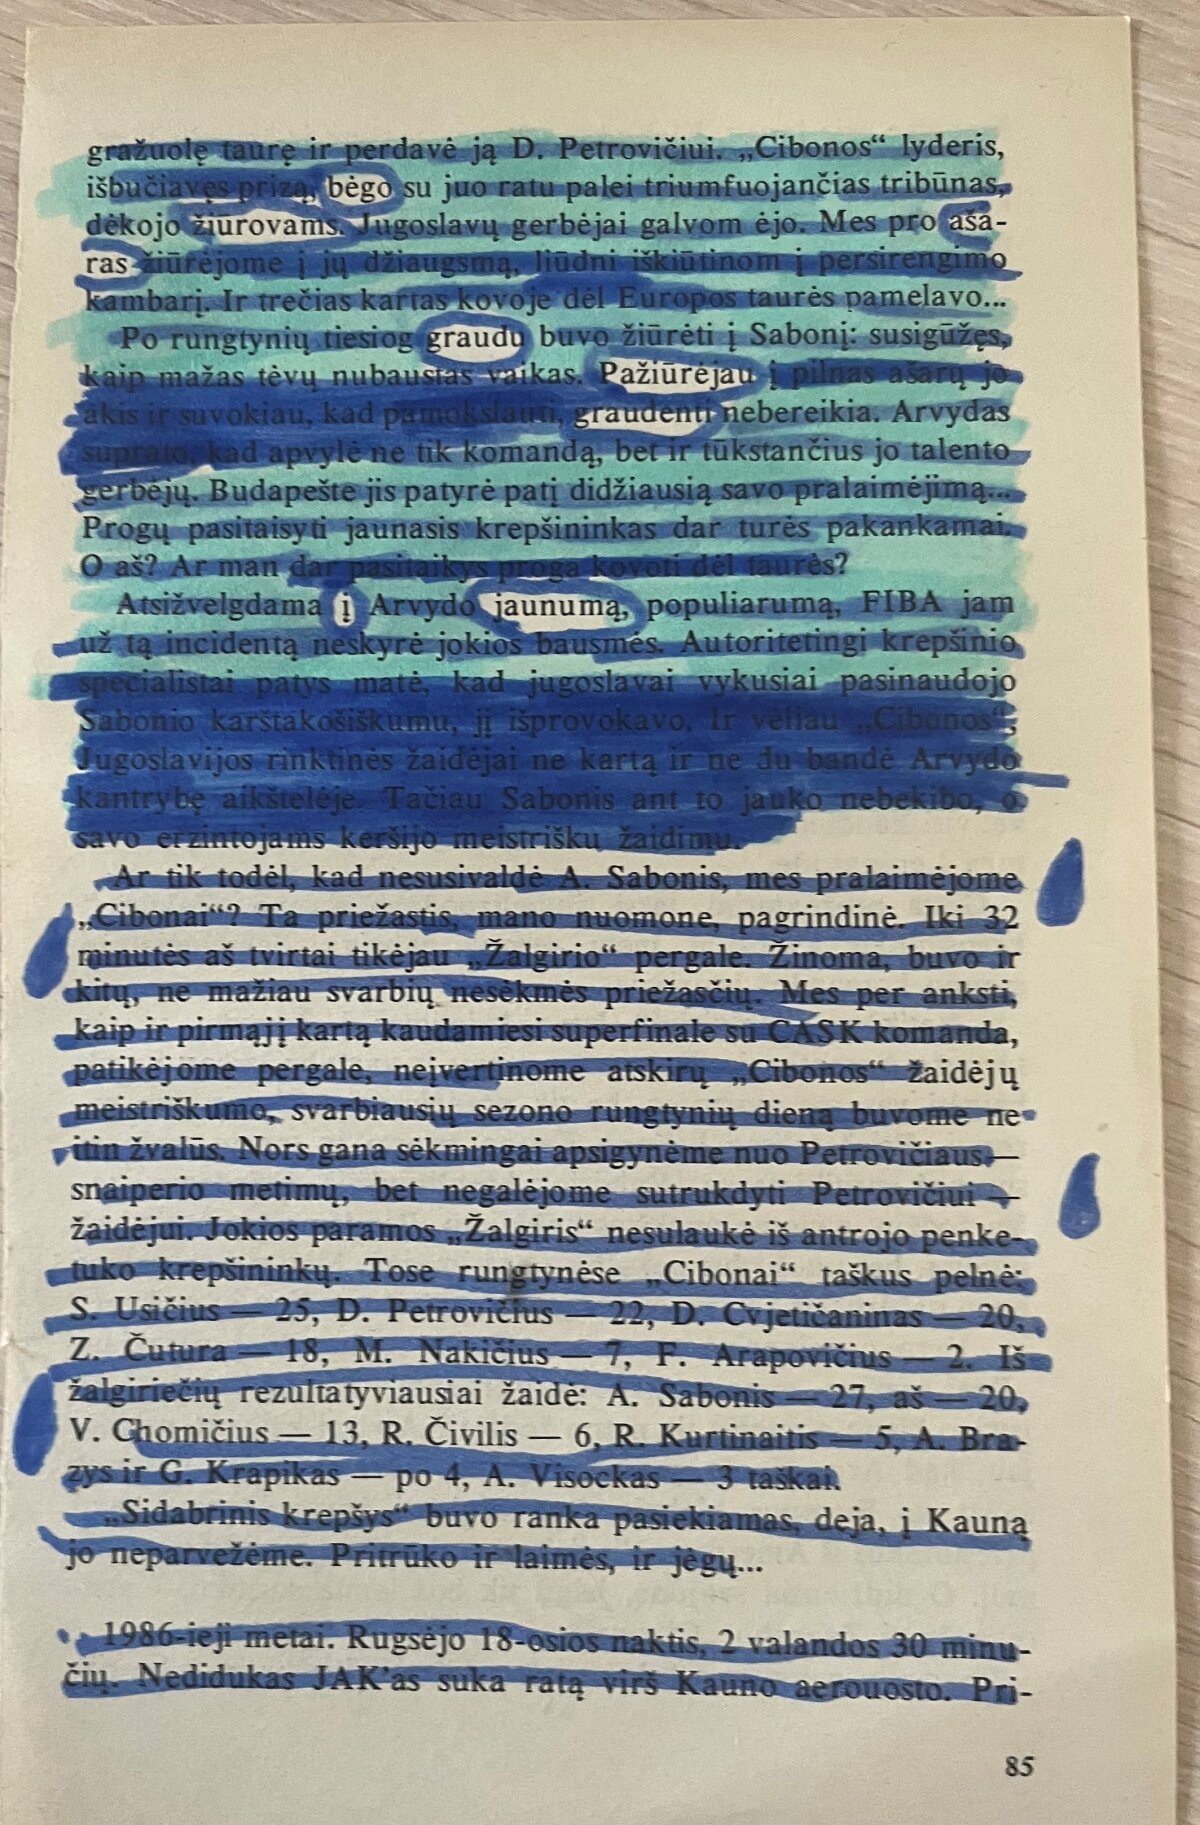 gražuolę taurę ir perdavė ją D. Petrovičiui. „Cibonos“ lyderis,
išbučiavęs prizą, bėgo su juo ratu palei triumfuojančias tribūnas,
dėkojo žiūrovams. Jugoslavų gerbėjai galvom ėjo. Mes pro aša-
ras žiūrėjome į jų džiaugsmą, liūdni iškiūtinom į persirengimo
kambarį. Ir trečias kartas kovoje dėl Europos taurės pamelavo...
Po rungtynių tiesiog graudu buvo žiūrėti į Sabonį: susigūžęs,
kaip mažas tėvų nubaustas vaikas. Pažiūrėjau į pilnas ašarų jo
akis ir suvokiau, kad pamokslauti, graudenti nebereikia. Arvydas
suprato, kad apvylė ne tik komandą, bet ir tūkstančius jo talento
gerbėjų. Budapešte jis patyrė patį didžiausią savo pralaimėjimą...
Progų pasitaisyti jaunasis krepšininkas dar turės pakankamai.
O aš? Ar man dar pasitaikys proga kovoti dėl taurės?
Atsižvelgdama į Arvydo jaunumą, populiarumą, FIBA jam
už tą incidentą neskyrė jokios bausmės. Autoritetingi krepšinio
specialistai patys matė, kad jugoslavai vykusiai pasinaudojo
Sabonio karštakošiškumu, jį išprovokavo. Ir vėliau „Cibonos“,
Jugoslavijos rinktinės žaidėjai ne kartą ir ne du bandė Arvydo
kantrybę aikštelėje. Tačiau Sabonis ant to jauko nebekibo, o
savo erzintojams keršijo meistrišku žaidimu.
Ar tik todėl, kad nesusivaldė A. Sabonis, mes pralaimėjome
„Cibonai“? Ta priežastis, mano nuomone, pagrindinė. Iki 32
minutės aš tvirtai tikėjau „Žalgirio“ pergale. Žinoma, buvo ir
kitų, ne mažiau svarbių nesėkmės priežasčių. Mes per anksti,
kaip ir pirmąjį kartą kaudamiesi superfinale su CASK komanda,
patikėjome pergale, neįvertinome atskirų „Cibonos“ žaidėjų
meistriškumo, svarbiausių sezono rungtynių dieną buvome ne
itin žvalūs. Nors gana sėkmingai apsigynėme nuo Petrovičiaus —
snaiperio metimų, bet negalėjome sutrukdyti Petrovičiui —
žaidėjui. Jokios paramos „Žalgiris“ nesulaukė iš antrojo penke-
tuko krepšininkų. Tose rungtynėse „Cibonai“ taškus pelnė:
S. Usičius — 25, D. Petrovičius — 22, D. Cvjetičaninas — 20,
Z. Čutura — 18, M. Nakičius — 7, F. Arapovičius — 2. Iš
žalgiriečių rezultatyviausiai žaidė: A. Sabonis — 27, aš — 20,
V. Chomičius — 13, R. Čivilis — 6, R. Kurtinaitis — 5, A. Bra-
zys ir G. Krapikas — po 4, A. Visockas — 3 taškai.
„Sidabrinis krepšys“ buvo ranka pasiekiamas, deja, į Kauną
jo neparvežėme. Pritrūko ir laimės, ir jėgų...
1986-ieji metai. Rugsėjo 18-osios naktis, 2 valandos 30 minu-
čių. Nedidukas JAK’as suka ratą virš Kauno aerouosto. Pri-
85